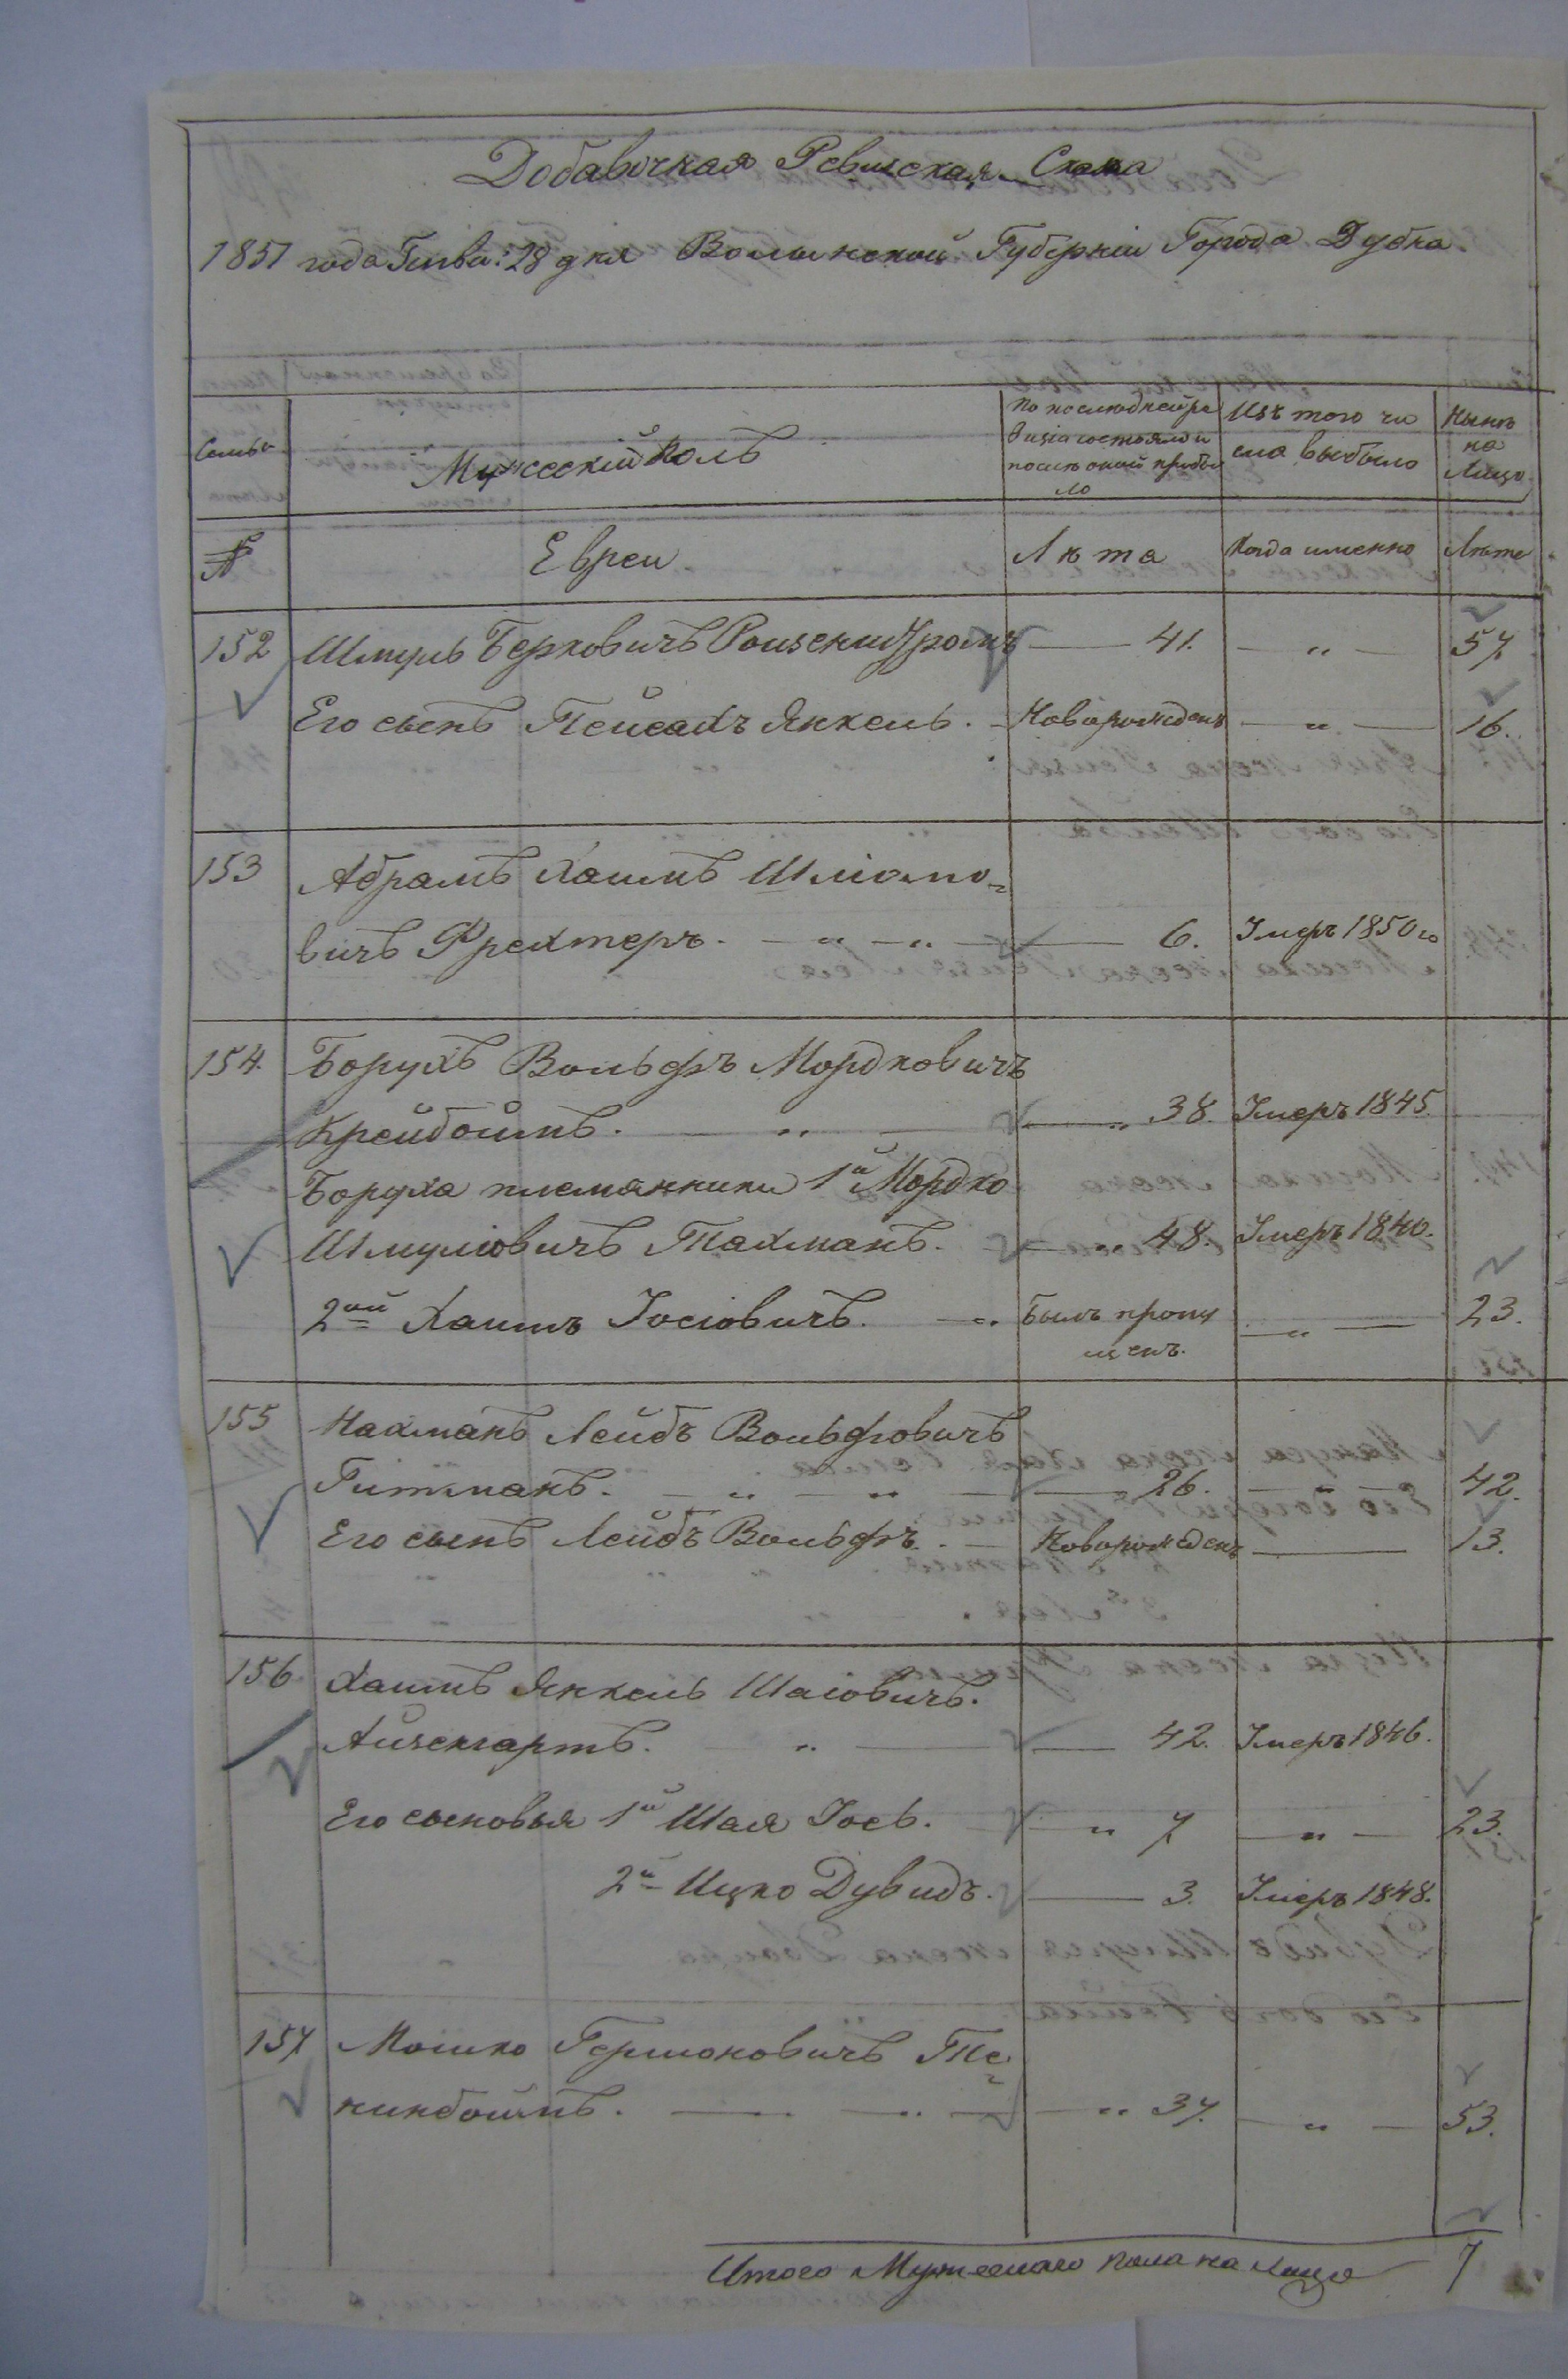 Добавочная Ревиская Скаска
1851 года Генва: 28 дня Волынской Губернiи Города Дубна
Семьи
Мужескiй Полъ
По последней ре
визiи состояло и
после оной прибы
ло
Изъ того чи
сла выбыло
Ныне
на
Лицо
№
Евреи
Лѣта
Когда именно
Лѣта
152 Шмуль Берковичъ 41. " 57
Его сынъ Пейсахъ Янкель. Новорожденъ " 16.
153 Абрамъ Хаимъ Шлiомо-
вичъ Фрехтеръ. " " 6. Умеръ 1850 го
154. Борухъ Вольфъ Мордковичъ
Крейбоймъ. " " 38. Умеръ 1845.
Боруха племянники 1й Мордко
Шмулiовичъ Тахманъ. " 48. Умеръ 1840.
2ой Хаимъ Iосiовичъ. " Былъ пропу
щенъ. " 23.
155 Нахманъ Лейбъ Вольфовичъ
Гитманъ. " " 26. " 42.
Его сынъ Лейбъ Вольфъ. Новорожденъ 13.
156. Хаимъ Янкель Шаiовичъ.
Айзенгартъ. " 42. Умеръ 1846.
Его сыновья 1й Шая Iось. " 7 " 23.
2й Ицко Дувидъ. 3. Умеръ 1848.
157 Мошко Гершоновичъ Те-
нинбоймъ. " " 37. " 53.
Итого Мужескаго пола на лицо 7